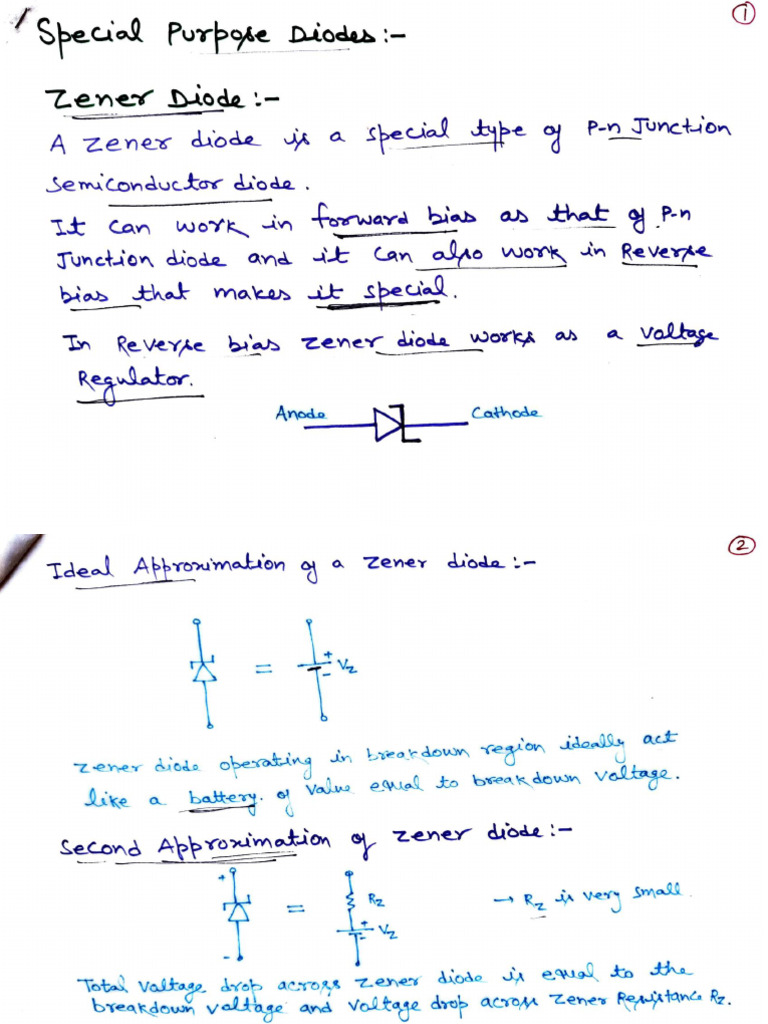 ①
Special Purpose Diodes :-
Zener Diode :-
A zener diode is a special type of P-n Junction
Semiconductor diode.
It can work in forward bias as that of P-n
Junction diode and it can also work in Reverse
bias that makes it special.
In Reverse bias zener diode works as a voltage
Regulator.
Anode Cathode
②
Ideal Approximation of a zener diode :-
= + - Vz
zener diode operating in breakdown region ideally act
like a battery. of value equal to breakdown voltage.
Second Approximation of zener diode :-
+ - = Rz + - Vz → Rz is very small.
Total voltage drop across zener diode is equal to the
breakdown voltage and voltage drop across zener Resistance Rz.